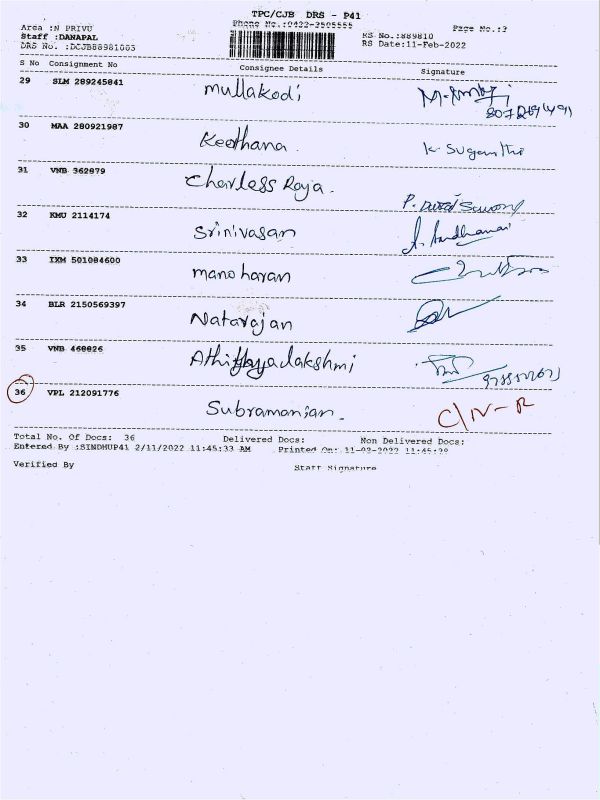 TPC/CJB DRS - P41
Area :N PRIVU Phone No.:0422-2505555 Page No.:3
Staff :DANAPAL RS No.:889810
DRS No. :DCJB88981003 RS Date:11-Feb-2022
S No Consignment No Consignee Details Signature
29 SLM 289245841 Mullakodi
30 MAA 280921987 Keethana K. Suganthi
31 VNB 362879 Charless Raja.
32 KMU 2114174 Srinivasan
33 IXM 501084600 manoharan
34 BLR 2150569397 Natarajan
35 VNB 468826
36 VPL 212091776 Subramanian. C/IV-R
Total No. Of Docs: 36 Delivered Docs: Non Delivered Docs:
Entered By :SINDHUP41 2/11/2022 11:45:33 AM Printed On: 11-02-2022 11:45:38
Verified By Staff Signature